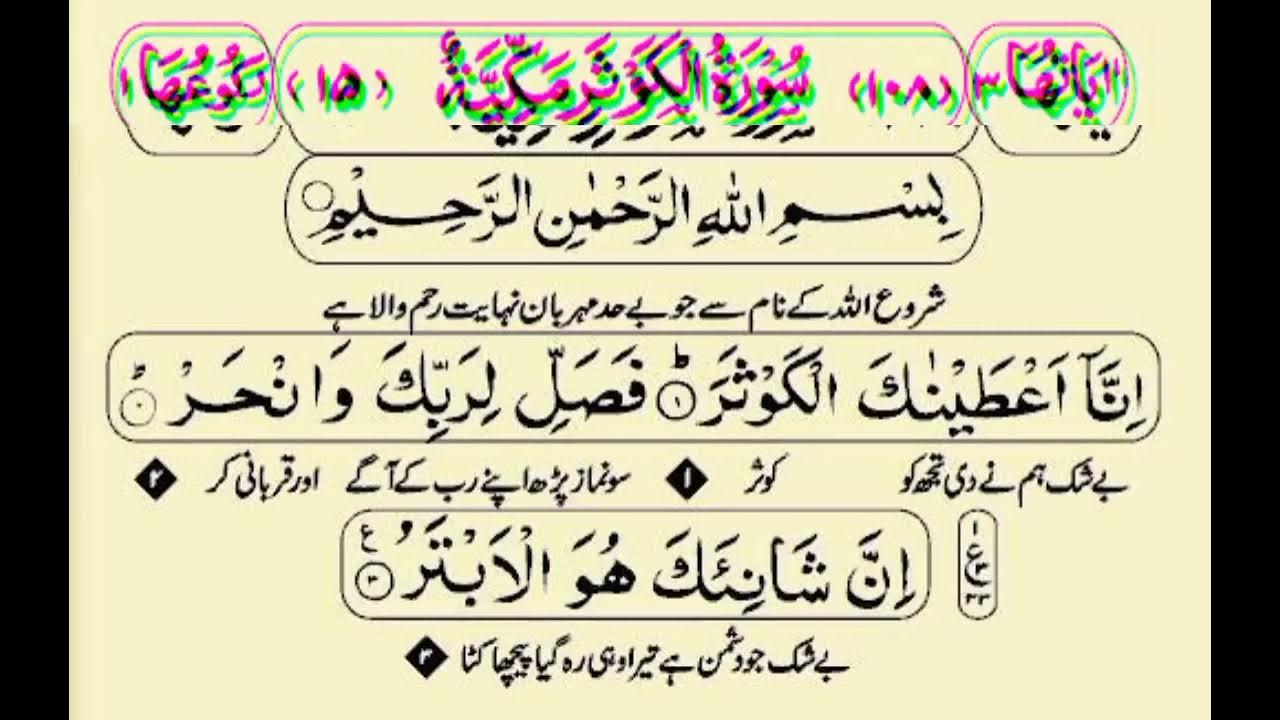 اٰيَاتُهَا ٣ (١٠٨) سُوْرَةُ الْكَوْثَرِ مَكِّيَّةٌ (١٥) رُكُوْعُهَا ١
بِسْمِ اللّٰهِ الرَّحْمٰنِ الرَّحِيْمِ
شروع اللہ کے نام سے جو بے حد مہربان نہایت رحم والا ہے
اِنَّآ اَعْطَيْنٰكَ الْكَوْثَرَ ؕ ١ فَصَلِّ لِرَبِّكَ وَانْحَرْ ؕ
بے شک ہم نے دی تجھ کو کوثر ۱ سو نماز پڑھ اپنے رب کے آگے اور قربانی کر ۲
اِنَّ شَانِئَكَ هُوَ الْاَبْتَرُ ٣ ع
بے شک جو دشمن ہے تیرا وہی رہ گیا پیچھا کٹا ۳